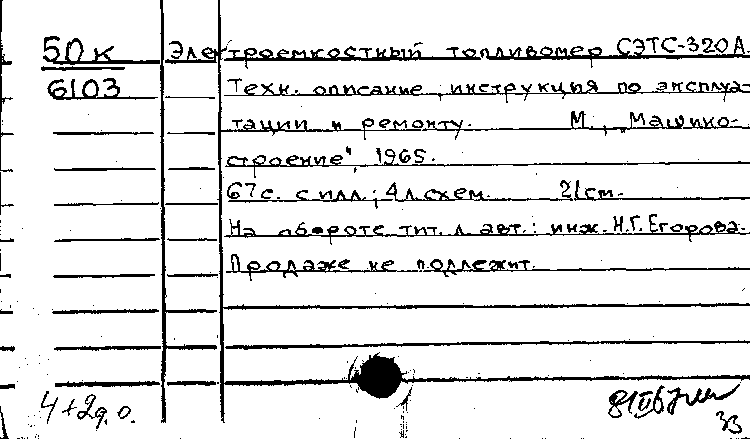 50к Электроемкостный топливомер СЭТС-320А.
6103 Техн. описание, инструкция по эксплуа-
тации и ремонту. М., „Машино-
строение“, 1965.
67с. с илл.; 4л.схем. 21см.
На обороте тит. л авт.: инж. Н.Г. Егорова.
Продаже не подлежит.
4+2д.о.
33